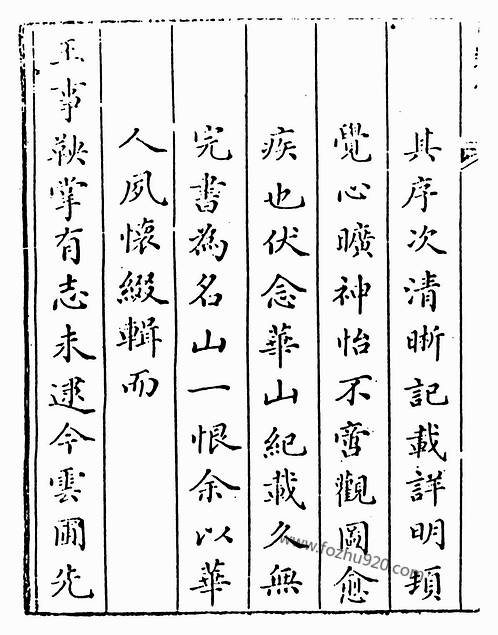 其序次清晰記載詳明頓
覺心曠神怡不啻觀圖愈
疾也伏念華山紀載久無
完書為名山一恨余以華
人夙懷綴輯而
王事鞅掌有志未逮今雲圃先
www.fozhu920.com